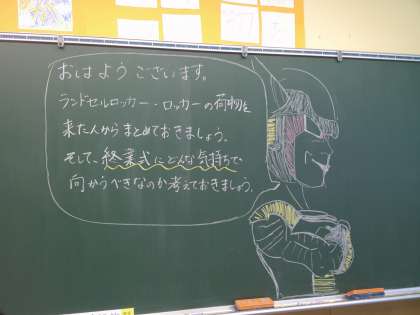 おはようございます。
ランドセルロッカー・ロッカーの荷物を
来た人からまとめておきましょう。
そして、終業式にどんな気持ちで
向かうべきなのか考えておきましょう。